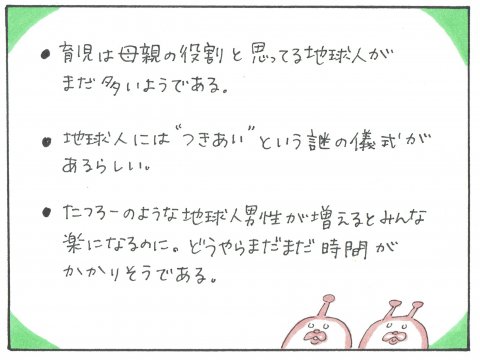 ● 育児は母親の役割と思ってる地球人が
まだ多いようである。
● 地球人には"つきあい"という謎の儀式が
あるらしい。
● たつろーのような地球人男性が増えるとみんな
楽になるのに。どうやらまだまだ時間が
かかりそうである。